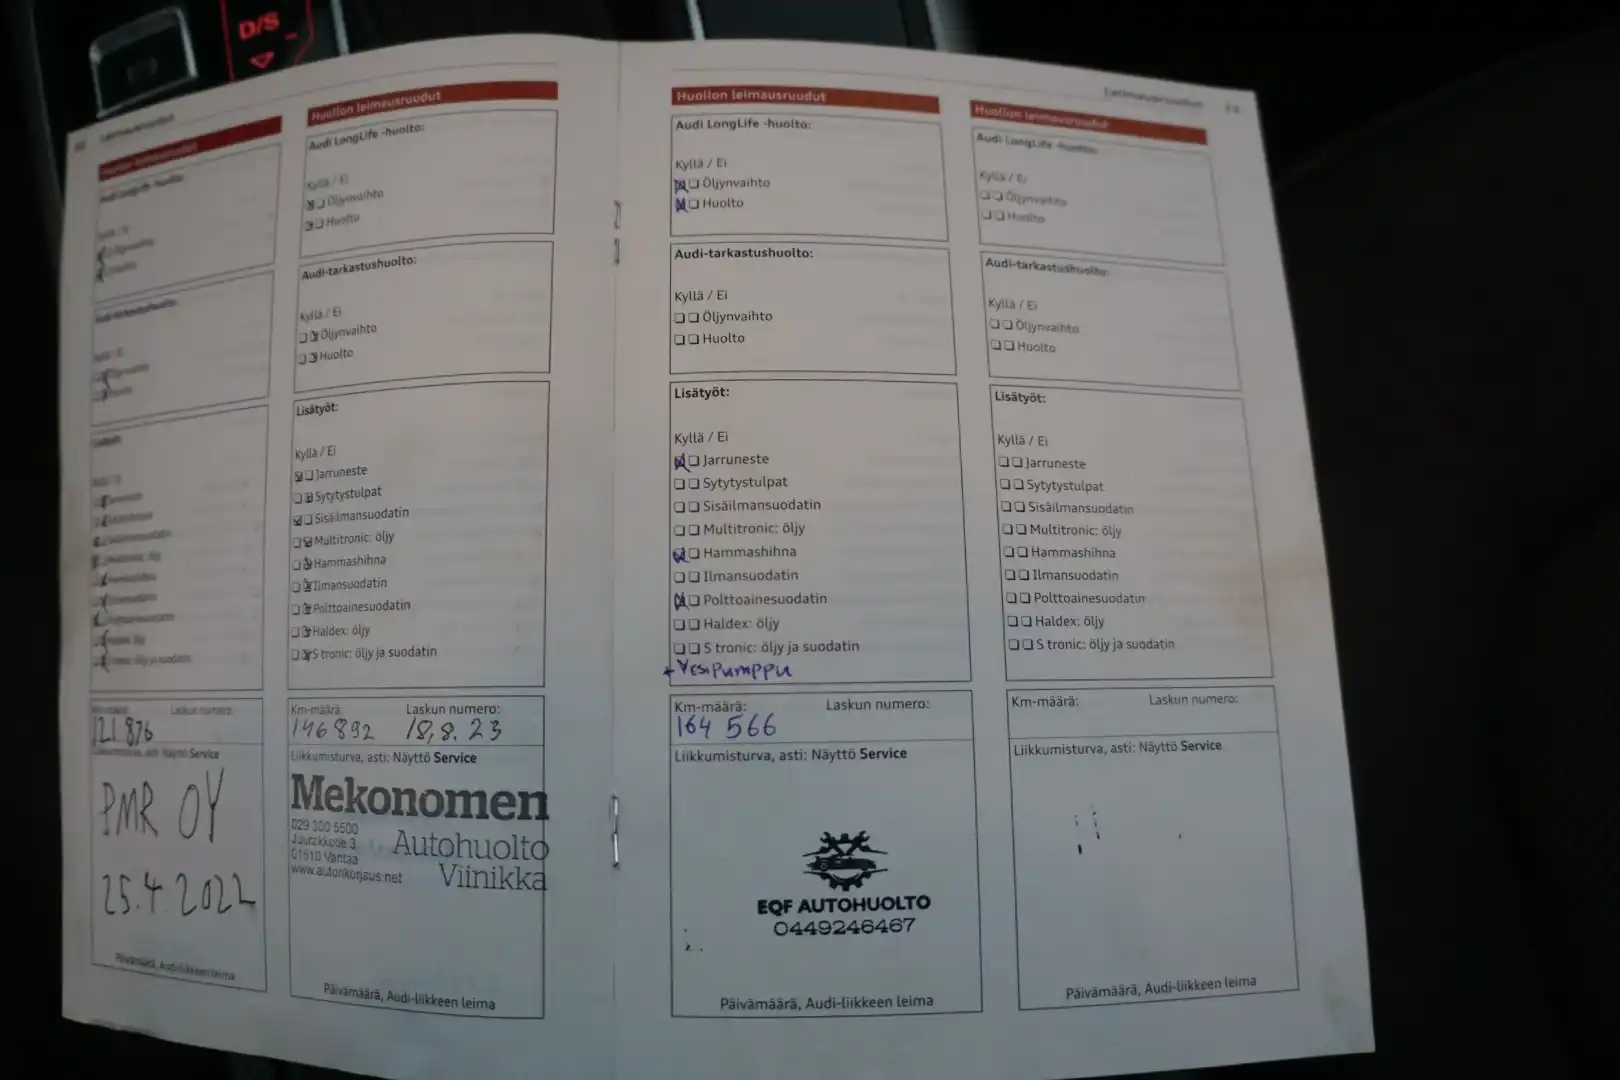 D/S
Huollon leimausruudut
Audi LongLife -huolto:
121 876
Laskun numero:
Näyttö Service
PMR OY
25.4 2022
Päivämäärä, Audi-liikkeen leima
Huollon leimausruudut
Audi LongLife -huolto:
Kyllä / Ei
Öljynvaihto
Huolto
Audi-tarkastushuolto:
Kyllä / Ei
Öljynvaihto
Huolto
Lisätyöt:
Kyllä / Ei
Jarruneste
Sytytystulpat
Sisäilmansuodatin
Multitronic: öljy
Hammashihna
Ilmansuodatin
Polttoainesuodatin
Haldex: öljy
S tronic: öljy ja suodatin
Km-määrä: Laskun numero:
146 892 18,8. 23
Liikkumisturva, asti: Näyttö Service
Mekonomen
029 300 5500
Juurakkotie 3
01510 Vantaa
www.autonkorjaus.net
Autohuolto
Viinikka
Päivämäärä, Audi-liikkeen leima
Huollon leimausruudut
Audi LongLife -huolto:
Kyllä / Ei
Öljynvaihto
Huolto
Audi-tarkastushuolto:
Kyllä / Ei
Öljynvaihto
Huolto
Lisätyöt:
Kyllä / Ei
Jarruneste
Sytytystulpat
Sisäilmansuodatin
Multitronic: öljy
Hammashihna
Ilmansuodatin
Polttoainesuodatin
Haldex: öljy
S tronic: öljy ja suodatin
+ Vesipumppu
Km-määrä: Laskun numero:
164 566
Liikkumisturva, asti: Näyttö Service
EQF AUTOHUOLTO
0449246467
Päivämäärä, Audi-liikkeen leima
Leimausruudut
Huollon leimausruudut
Audi LongLife -huolto:
Kyllä / Ei
Öljynvaihto
Huolto
Audi-tarkastushuolto:
Kyllä / Ei
Öljynvaihto
Huolto
Lisätyöt:
Kyllä / Ei
Jarruneste
Sytytystulpat
Sisäilmansuodatin
Multitronic: öljy
Hammashihna
Ilmansuodatin
Polttoainesuodatin
Haldex: öljy
S tronic: öljy ja suodatin
Km-määrä: Laskun numero:
Liikkumisturva, asti: Näyttö Service
Päivämäärä, Audi-liikkeen leima